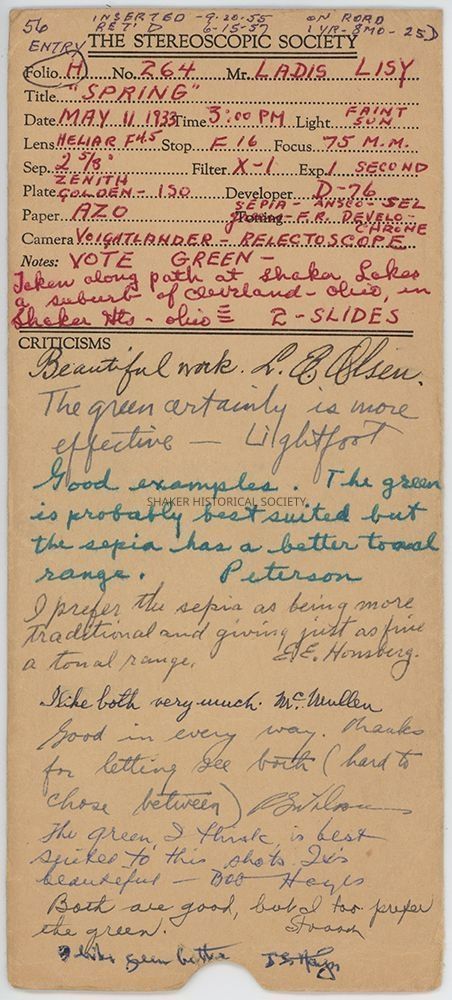 56 INSERTED - 9-20-55 ON ROAD
RET'D 6-15-57 1 YR-8 MO-25 D
ENTRY THE STEREOSCOPIC SOCIETY
Folio H No. 264 Mr. LADIS LISY
Title "SPRING"
Date MAY 11 1933 Time 3:00 PM Light FAINT SUN
Lens HELIAR F4.5 Stop F 16 Focus 75 M.M.
Sep. 2 5/8" Filter X-1 Exp. 1 SECOND
Plate ZENITH GOLDEN - 150 Developer D-76
Paper AZO Toning SEPIA - ANSCO - SEL
GREEN - E.R. DEVELO-CHROME
Camera VOIGHTLANDER - REFLECTOSCOPE
Notes: VOTE GREEN -
Taken along path at Shaker Lakes
a suburb of Cleveland - Ohio, in
Shaker Hts - Ohio 2 - SLIDES
CRITICISMS
Beautiful work. L. E. Olsen.
The green certainly is more
effective — Lightfoot
Good examples. The green
SHAKER HISTORICAL SOCIETY
is probably best suited but
the sepia has a better tonal
range. Peterson
I prefer the sepia as being more
traditional and giving just as fine
a tonal range. E.E. Honsberg.
I like both very much. McMullen
Good in every way. Thanks
for letting see both (hard to
chose between)
The green, I think, is best
suited to this shot. Its
beautiful — Bob Hayes
Both are good, but I too prefer
the green.
I like green better